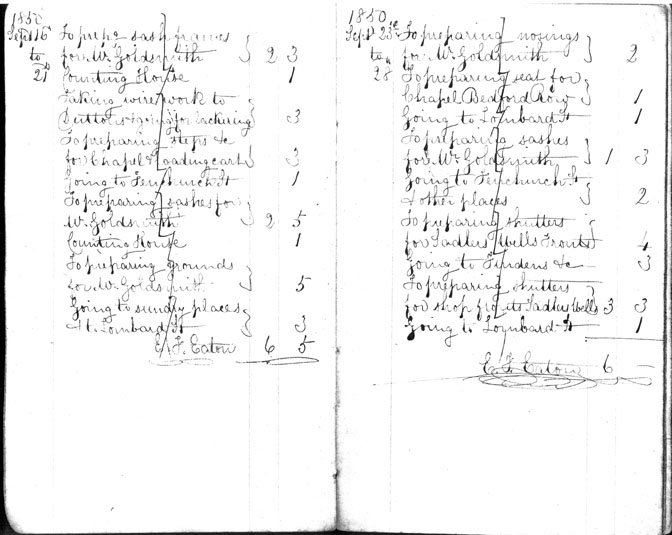 1850
Sept 16 To prepg sash frames
to for Mr. Goldsmith } 2 3
21st Counting House 1
Taking wire work to
Duttons & going for lackering } 3
To preparing steps &c
for Chapel & loading carts } 3
Going to Fenchurch St 1
To preparing sashes for
Mr. Goldsmith } 2 5
Counting House 1
To preparing grounds
for Mr. Goldsmith } 5
Going to sundry places
& to Lombard St } 3
E. F. Eaton 6 5
1850
Sept 23rd To preparing nosings
to for Mr Goldsmith } 2
28 To preparing seat for
Chapel Bedford Row } 1
Going to Lombard St 1
To preparing sashes
for Mr Goldsmith } 1 3
Going to Fenchurch St
& other places } 2
To preparing shutters
for Sadlers Wells Fronts } 4
Going to Tindens &c 3
To preparing shutters
for shop fronts Sadlers Wells } 3 3
Going to Lombard St 1
E. F. Eaton 6 —